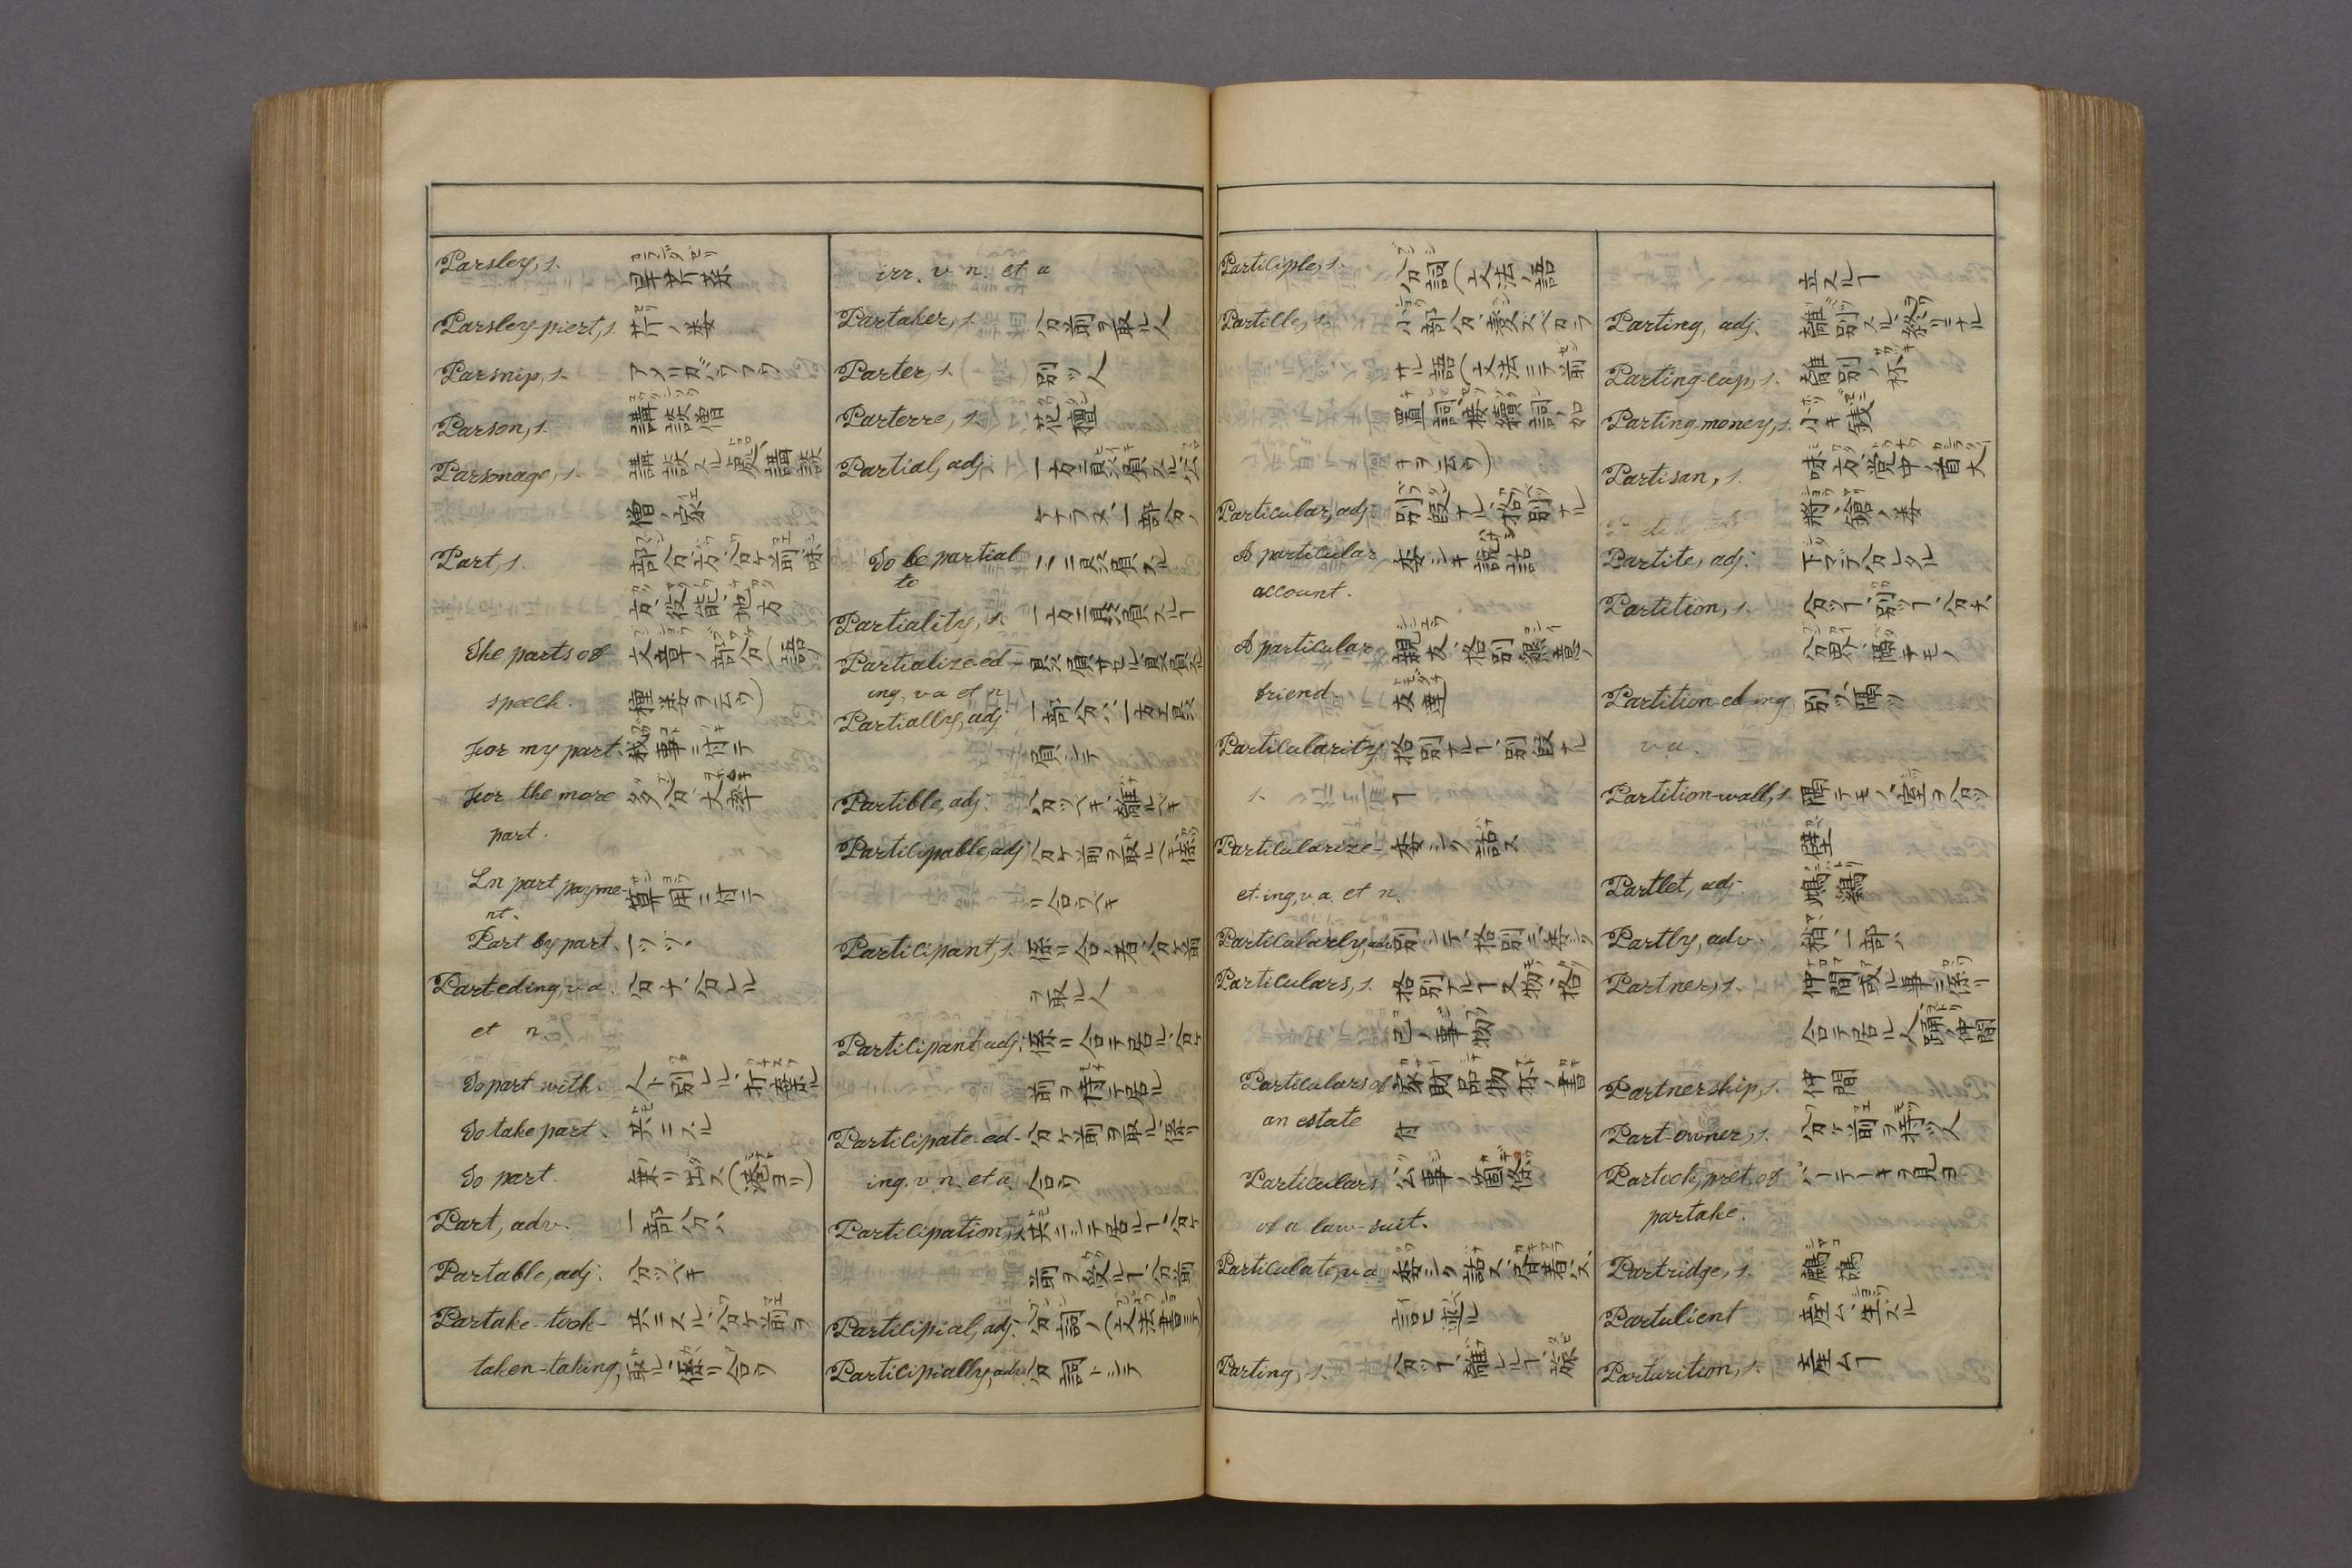 Parsley, s. 旱芹菜
Parsley-piert, s. 芹ノ類
Parsnip, s. アメリカバウフウ
Parson, s. 講談僧
Parsonage, s. 講談スル処、講談
僧ノ家
Part, s. 部分、方、分ケ前、味
方、役、能、地方
The parts of 文章ノ部分(語ノ
speech. 種類ヲ云ウ)
For my part. 我事ニ付テ
For the more 多分、大率
part.
In part payme- 算用ニ付テ
nt.
Part by part. 一ツツヽ
Part-ed-ing, v. a. 分ツ、分レル
et n.
To part with. 人ト別レル、打棄ル
To take part. 共ニスル
To part. 乗リ出ス(港ヨリ)
Part, adv. 一部分ハ
Partable, adj. 分ツベキ
Partake-took- 共ニスル、分ケ前ヲ
taken-taking, 取ル、係リ合ウ
irr. v. n. et a
Partaker, s. 分前ヲ取ル人
Parter, s. 別ツ人
Parterre, s. 花壇
Partial, adj. 一方ニ贔負スル、公
ケナラヌ、一部分ノ
To be partial ニ贔負スル
to
Partiality, s. 一方ニ贔負スルコト
Partialize-ed- 贔負サセル、贔負スル
ing, v a et n
Partially, adj 一部分ハ、一方エ贔
負シテ
Partible, adj. 分ツベキ、離ルベキ
Participable, adj 分ケ前ヲ取ルベキ、係
リ合ウベキ
Participant, s. 係リ合ノ者、分ケ前
ヲ取ル人
Participant, adj. 係リ合テ居ル、分ケ
前ヲ持テ居ル
Participate-ed- 分ケ前ヲ取ル、係リ
ing. v. n. et a. 合ウ
Participation, s. 共ニシテ居ルコト、分ケ
前ヲ受ルコト、分前
Participial, adj. 分詞ノ(文法書ニテ)
Participially, adv. 分詞トシテ
Participle, s. 分詞(文法ノ語
Particle, s. 小部分、変スベカラ
サル語(文法ニテ前
置詞接續詞ノ如
キヲ云ウ)
Particular, adj. 別段ナル、格別ナル
A particular 委シキ説話
account.
A particular 親友、格別懇意ノ
friend. 友達
Particularity 格別ナルコト、別段ナル
s. コト
Particularize- 委シク話ス
et-ing, v. a. et n.
Particularly, adv. 別シテ、格別ニ、委シク
Particulars, s. 格別ナルコト又物、
自己ノ事物
Particulars of 家財品物抔ノ書
an estate 付
Particulars 公事ノ箇條
of a law-suit.
Particulate, v a 委シク話ス、
言ヒ述ル
Parting, s. 分ツコト、離レルコト、旅
立スルコト
Parting, adj. 離別スル、終リニナル
Parting-cup, s. 離別ノ杯
Parting-money, s. 小キ錢
Partisan, s. 味方、党中ノ首、大
將、鎗ノ類
Partite, adj. 下マデ分レタル
Partition, s. 分ツコト、別ツコト、分チ、
分界、隔テモノ
Partition-ed-ing 別ツ、隔ツ
v a.
Partition-wall, s. 隔テモノ、室ヲ分ツ
壁
Partlet, adj. 雌鶏
Partly, adv. 稍、一部ハ
Partner, s. 仲間、或ル事ニ係リ
合テ居ル人、踊ノ仲間
Partnership, s. 仲間
Part-owner, s. 分ケ前ヲ持ツ人
Partook, pret. of パーテーキヲ見ヨ
partake.
Partridge, s. 鷓鴣
Partulient 産ム、生ズル
Parturition, s. 産ムコト